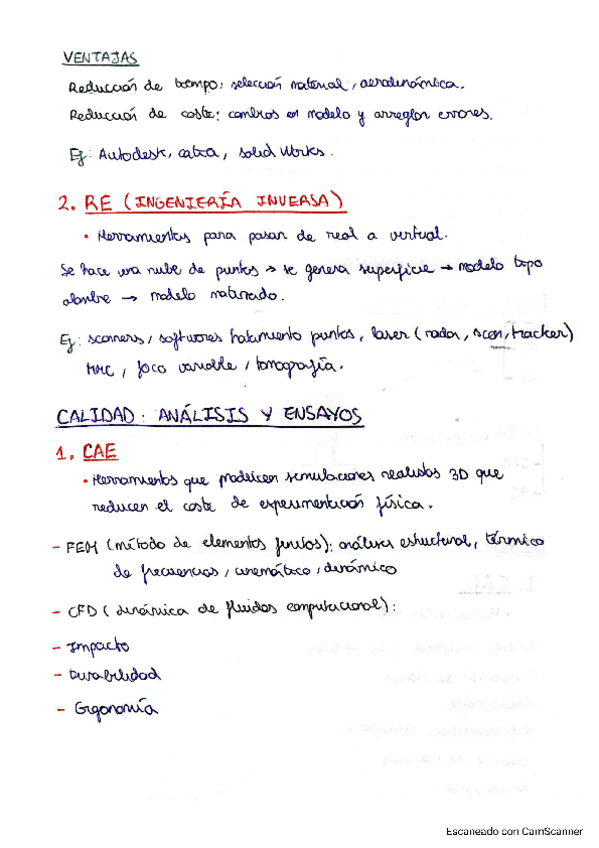 VENTAJAS
Reducción de tiempo: selección material, aerodinámica.
Reducción de coste: cambios en modelo y arreglar errores.
Ej: Autodesk, catia, solid Works.
2. RE (INGENIERÍA INVERSA)
• Herramientas para pasar de real a virtual.
Se hace una nube de puntos → se genera superficie → modelo tipo
alambre → modelo maturizado.
Ej: scanners, softwares tratamiento puntos, laser (radar, scan, tracker)
MMC, foco variable, tomografía.
CALIDAD: ANÁLISIS Y ENSAYOS
1. CAE
• Herramientas que producen simulaciones realistas 3D que
reducen el coste de experimentación física.
- FEM (método de elementos finitos): análisis estructural, térmico
de frecuencias, cinemático, dinámico
- CFD (dinámica de fluidos computacional):
- Impacto
- Durabilidad
- Ergonomía
Escaneado con CamScanner